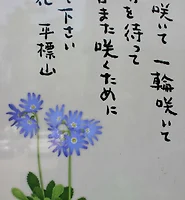 咲いて 一輪咲いて
を待って
また咲くために
下さい
平標山